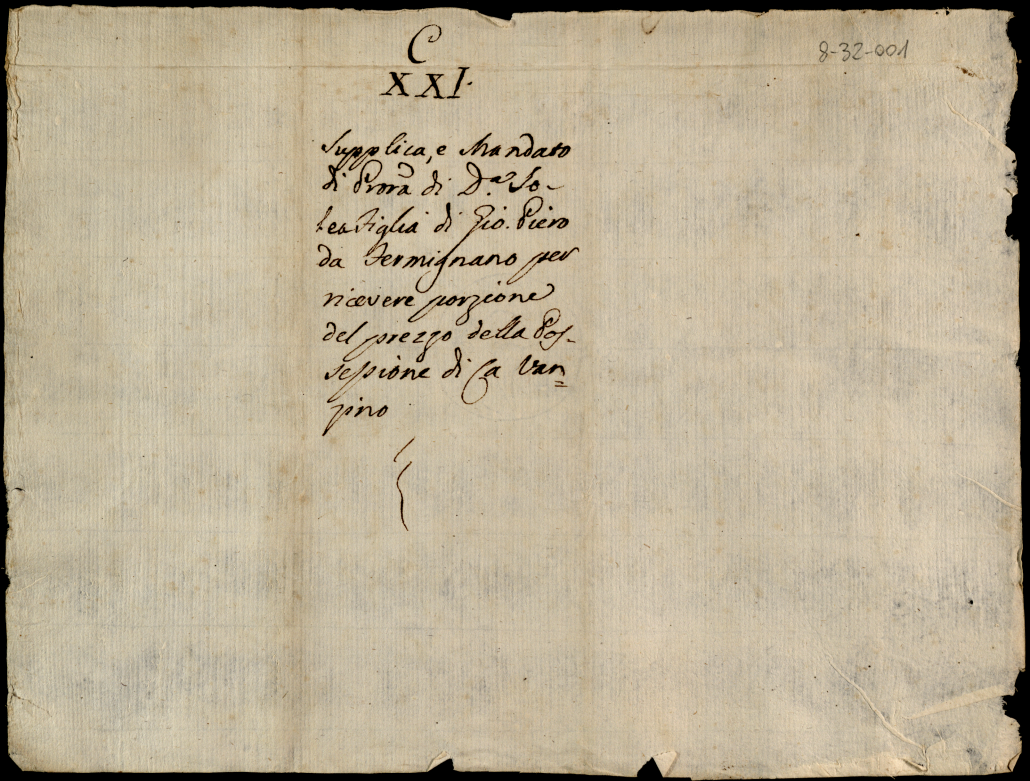 C
8-32-001
XXI.
Supplica, e Mandato
di Prora di D.a So-
lea Figlia di Gio. Piero
da Fermignano per
ricevere porzione
del prezzo della Pos-
sessione di Ca Van=
zino